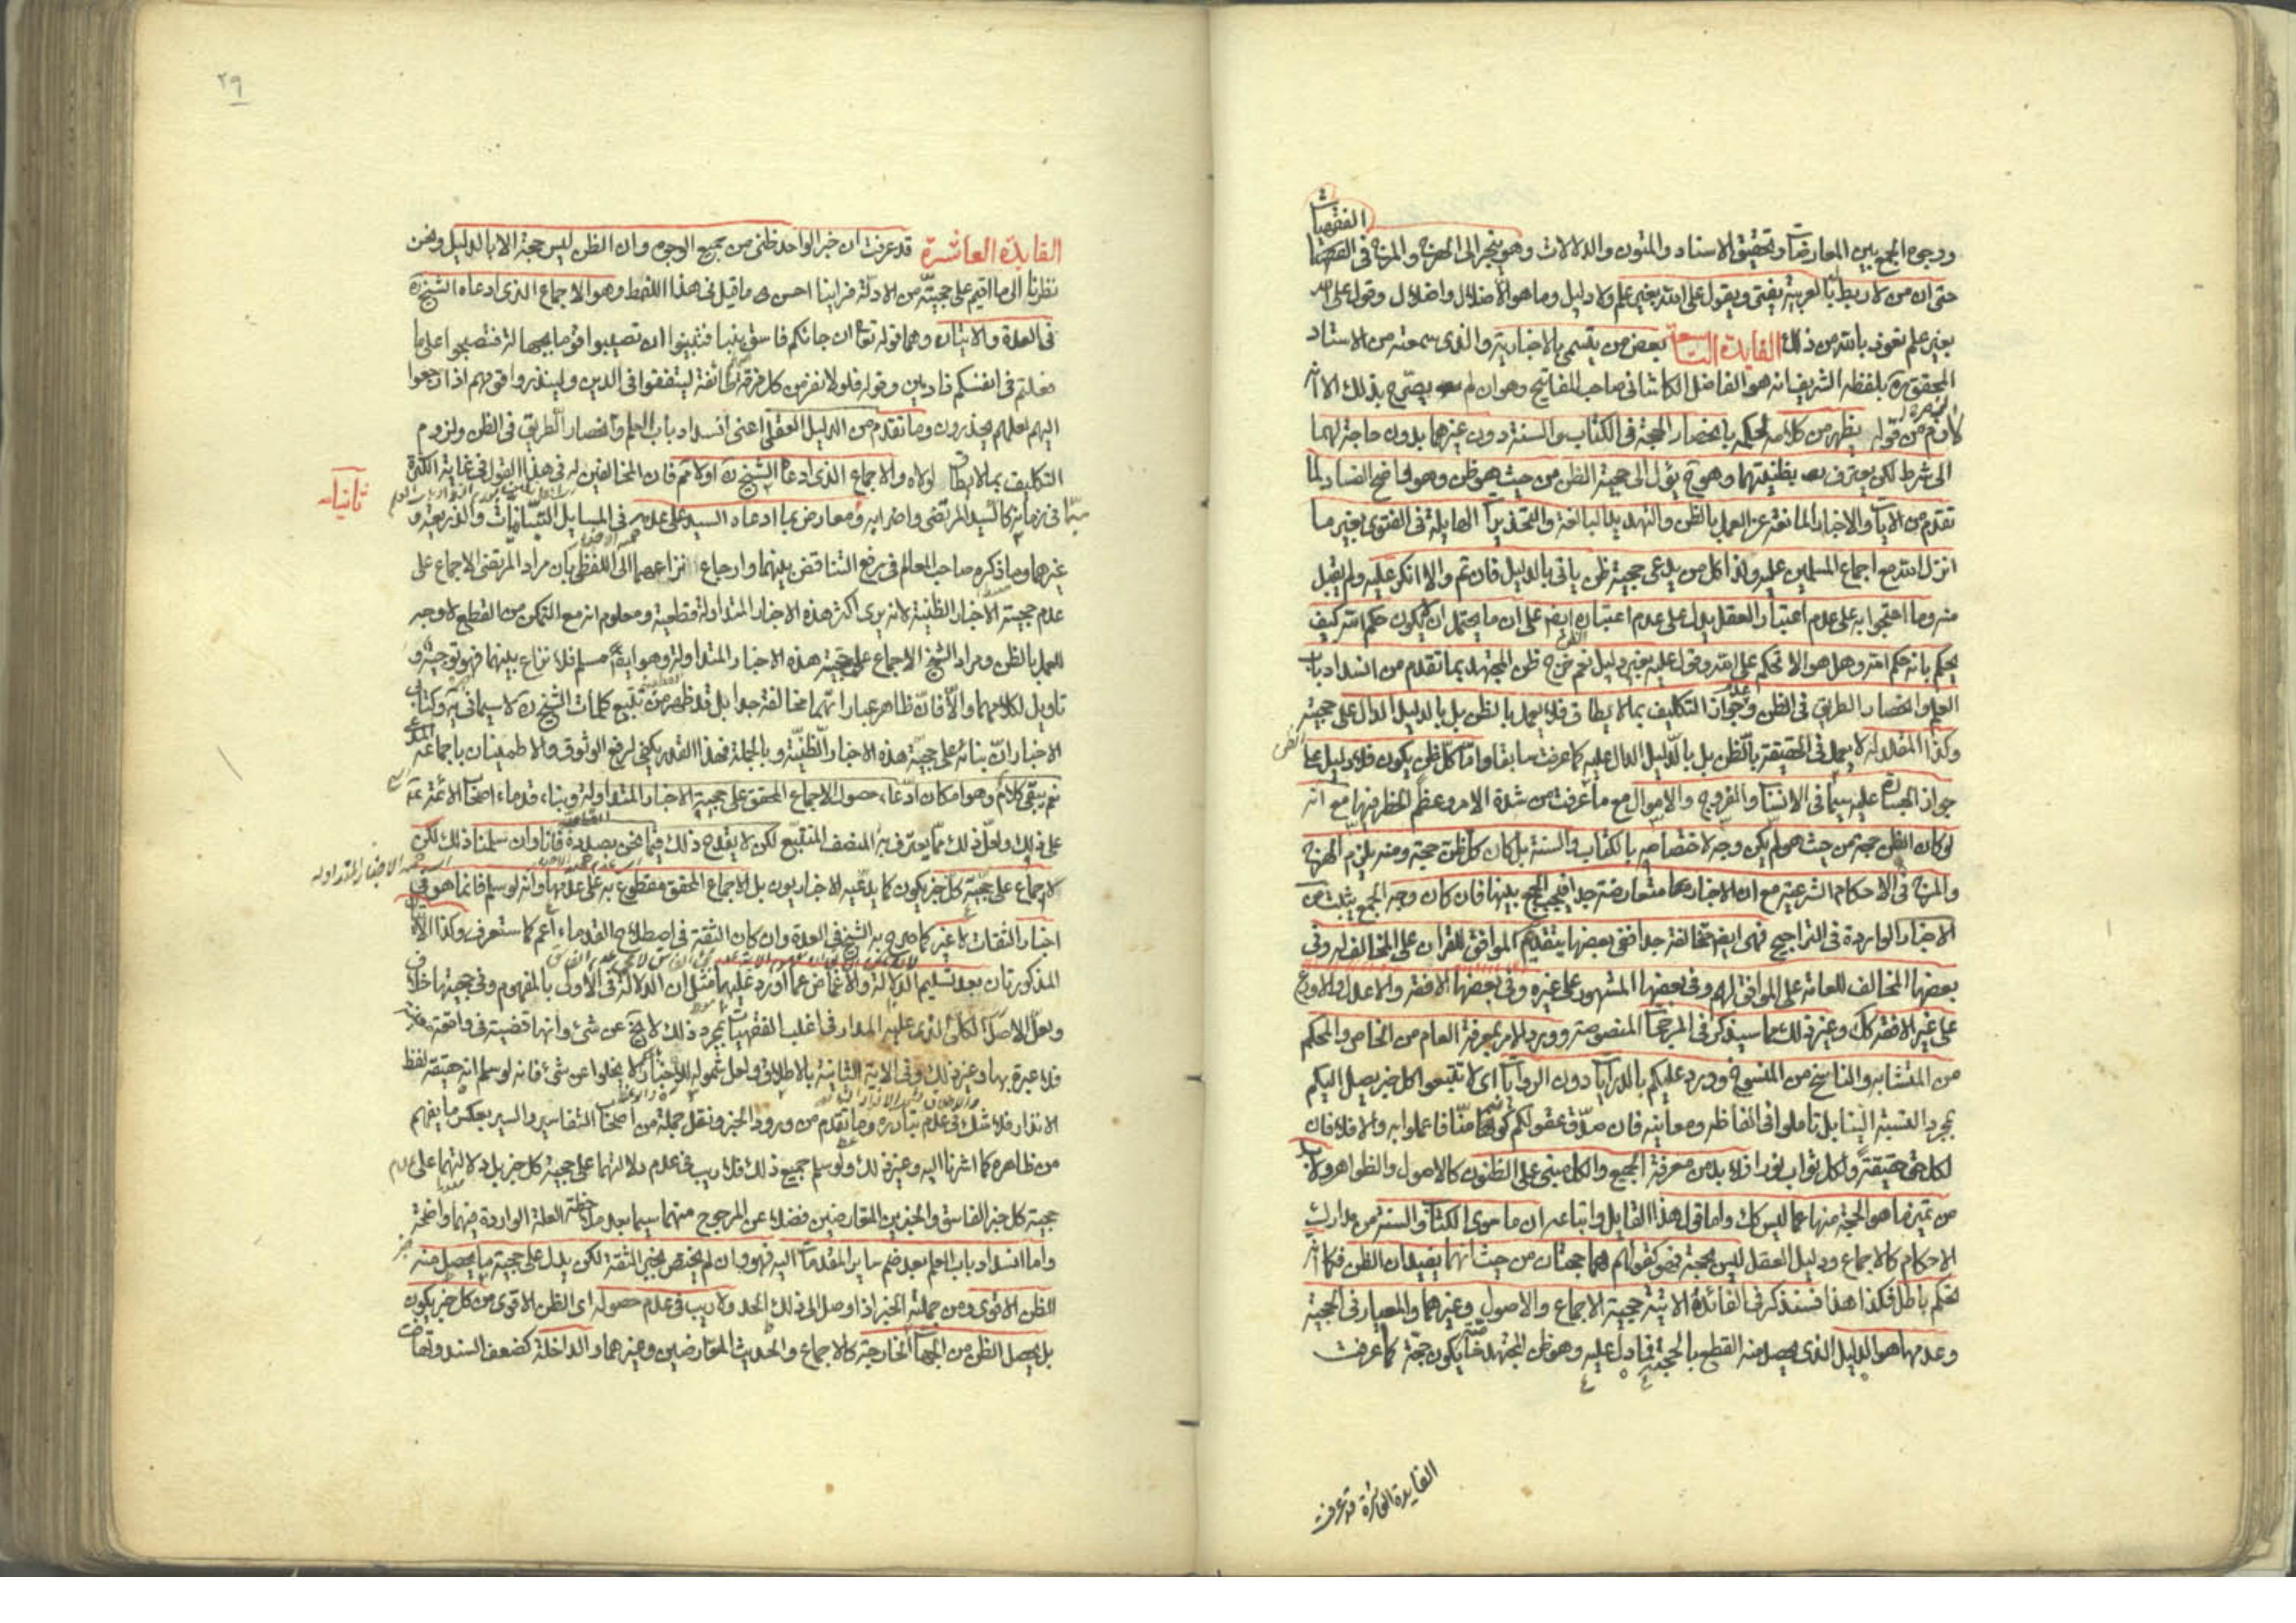 الفقهيات
ووجوه الجمع بين المعارضات وتحقيق الاسناد والمتون والدلالات وهو ينجر الى الهرج والمرج في الفقه
حتى ان من لا ربط له بالعربية يفتى ويقول على الله بغير علم ولا دليل وما هو الا ضلال واضلال وقول على الله
بغير علم نعوذ بالله من ذلك الفايدة التاسعة بعض من يتسمى بالاخبارية والذى سمعته من الاستاد
المحقق ره بلفظه الشريف انه هو الفاضل الكاشانى صاحب المفاتيح وهو ان لم يصرح بذلك الا انه
يظهر من كلامه الحكم بانحصار الحجة فى الكتاب والسنة دون غيرهما بدون حاجة لهما
الى شرط لكن يعترف بظنيتهما وهو ح يؤل الى حجية الظن من حيث هو ظن وهو واضح الفساد لما
تقدم من الايات والاخبار المانعة عن العمل بالظن والتهديد البالغة والتحذيرات الهايلة فى الفتوى بغير ما
انزل الله مع اجماع المسلمين عليه ولذا كل من يدعى حجية ظن ياتى بالدليل فان تم والا انكر عليه ولم يقبل
منه وما احتجوا به على عدم اعتبار العقل يدل على عدم اعتباره ايض على ان ما يحتمل ان يكون حكم الله كيف
يحكم بانه حكم الله وهل هو الا تحكم على الله وقول عليه بغير دليل نعم خرج ظن المجتهد بما تقدم من انسداد باب
العلم وانحصار الطريق فى الظن وعدم جواز التكليف بما لا يطاق فلا يعمل بالظن بل بالدليل الدال على حجية
الظن
وكذا المقلد له لا يعمل فى الحقيقة بالظن بل بالدليل الدال عليه كما عرفت سابقا واما كل ظن يكون فلا دليل على
جواز الجسارة عليه سيما فى الانساب والفروج والاموال مع ما عرفت من شدة الامر وعظم الخطر فيها مع انه
لو كان الظن حجة من حيث هو لم يكن وجه لاختصاصه بالكتاب والسنة بل كان كل ظن حجة ومنه يلزم الهرج
والمرج فى الاحكام الشرعية مع ان الاخبار متعارضة جدا فيجب الجمع بينها فان كان وجه الجمع يثبت من
الاخبار الواردة فى التراجيح فهى ايض متخالفة جدا ففى بعضها يتقدم الموافق للقران على المخالف له وفى
بعضها المخالف للعامة على الموافق لهم وفى بعضها المشهور على غيره وفى بعضها الافقه والاعدل والاورع
على غير الافقه كك وغير ذلك مما سيذكر فى المرجحات المنصوصة وورد الامر بمعرفة العام من الخاص والمحكم
من المتشابه والناسخ من المنسوخ وورد عليكم بالدرايات دون الروايات اى لا تتبعوا كل خبر يصل اليكم
بمجرد النسبة الينا بل تاملوا فى الفاظه ومعانيه فان صدق عقولكم كونها منا فاعملوا به والا فلا فان
لكل حق حقيقة ولكل ثواب نورا فلا بد من معرفة الجميع والكل مبنى على الظنون كالاصول والظواهر ولا بد
من تميز ما هو الحجة منها عما ليس كك واما قول هذا القايل واتباعه ان ما سوى الكتاب والسنة من مدارك
الاحكام كالاجماع ودليل العقل ليس بحجة فهو كقولهم هما حجتان من حيث انهما يفيدان الظن فكما انه
تحكم باطل فكذا هذا فسنذكر فى الفائدة الاتية حجية الاجماع والاصول وغيرهما والمعيار فى الحجية
وعدمها هو الدليل الذى يحصل منه القطع بالحجية فما دل عليه وهو ظن المجتهد خاصة يكون حجة كما عرفت
الفايدة العاشرة قد عرفت
٢٩
الفايدة العاشرة قد عرفت ان خبر الواحد ظنى من جميع الوجوه وان الظن ليس حجة الا بالدليل ونحن
نظرنا الى ما اقيم على حجيته من الادلة فراينا احسن ما قيل فى هذا النمط وهو الاجماع الذى ادعاه الشيخ ره
فى العدة والايتان وهما قوله تعا ان جائكم فاسق بنبا فتبينوا ان تصيبوا قوما بجهالة فتصبحوا على ما
فعلتم فى انفسكم نادمين وقوله فلولا نفر من كل فرقة طائفة ليتفقهوا فى الدين ولينذروا قومهم اذا رجعوا
اليهم لعلهم يحذرون وما تقدم من الدليل العقلى اعنى انسداد باب العلم وانحصار الطريق فى الظن ولزوم
التكليف بما لا يطاق لولاه والاجماع الذى ادعاه الشيخ ره اولا تم فان المخالفين له فى هذا القول فى غاية الكثرة
ثانيا
سيما فى زمانه كالسيد المرتضى واضرابه ومعارض بما ادعاه السيد على عدمه فى المسايل التبانيات والذريعة و
غيرهما وما ذكره صاحب المعالم فى رفع التناقض بينهما وارجاع نزاعهما الى اللفظى بان مراد المرتضى الاجماع على
عدم حجية الاخبار الظنية لانه يرى اكثر هذه الاخبار المتداولة قطعية ومعلوم انه مع التمكن من القطع لا وجه
للعمل بالظن ومراد الشيخ الاجماع على حجية هذه الاخبار المتداولة وهو ايض مسلم فلا نزاع بينهما فهو توجيه و
تاويل لكلامهما والا فان ظاهر عباراتهما مخالفة جدا بل قد ظهر من تتبع كلمات الشيخ ره لا سيما فى يه وكتاب
الاخبار ان بنائه على حجية هذه الاخبار الظنية وبالجملة فهذا القدر يكفى لرفع الوثوق والاطمينان باجماعه
نعم يبقى كلام وهو امكان ادعاء حصول الاجماع المحقق على حجية الاخبار المتداولة وبناء قدماء اصحاب الائمة عه
على ذلك ولعل ذلك مما يعترف به المنصف المتتبع لكن لا يقدح ذلك فيما نحن بصدده فانا وان سلمنا ذلك لكن
الاخبار المتداوله
لا اجماع على حجية كل خبر يكون كما يدعيه الاخباريون بل الاجماع المحقق مقطوع به على عدمها وانه لو سلم فانما هو فى
اخبار الثقات لا غير كما صرح به الشيخ فى العدة وان كان الثقة فى اصطلاح القدماء اعم كما ستعرف وكذا الايتان
المذكورتان بعد تسليم الدلالة والاغماض عما اورد عليهما مثل ان الدلالة فى الاولى بالمفهوم وفى حجيتها خلاف
وجعل الاصل الكلى الذى عليه المدار فى اغلب الفقهيات بمجرد ذلك لا يخ عن شئ وانها قضية فى واقعة
فلا عبرة بها وغير ذلك وفى الاية الثانية بالاطلاق ولعل شموله للاخبار لا يخلوا عن شئ فانه لو سلم انه حقيقة لفظ
الانذار فلا شك فى عدم تبادره وما تقدم من ورود الخبر ونقل جملة من اصحاب التفاسير والسير بعكس ما يفهم
من ظاهره كما اشرنا اليه وغير ذلك ولو سلم جميع ذلك فلا ريب فى عدم دلالتهما على حجية كل خبر بل دلالتهما على عدم
حجية كل خبر الفاسق والخبرين المتعارضين فضلا عن المرجوح منهما سيما بعد ملاحظة العلة الواردة فيهما واضحة
واما انسداد باب العلم بعد ضم ساير المقدمات اليه فهو وان لم يختص بخبر الثقة لكن يدل على حجية ما يحصل منه
الظن الاقوى ومن جملته الخبر اذا وصل الى ذلك الحد ولا ريب فى عدم حصوله اى الظن الاقوى من كل خبر يكون
بل يحصل الظن من الجهات الخارجة كالاجماع والحديث المتعارضين وغيرهما والداخلة كضعف السند وتعارض